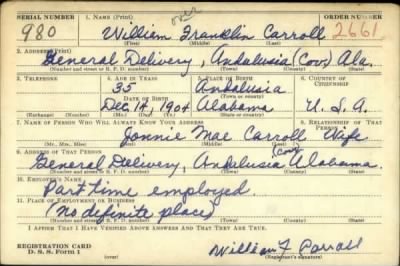 SERIAL NUMBER 1. NAME (Print) ORDER NUMBER
980 William Franklin Carroll 2661
over
(First) (Middle) (Last)
2. ADDRESS (Print)
General Delivery, Andalusia (Cov) Ala.
(Number and street or R. F. D. number) (Town) (County) (State)
3. TELEPHONE 4. AGE IN YEARS 5. PLACE OF BIRTH 6. COUNTRY OF CITIZENSHIP
35 Andalusia
DATE OF BIRTH (Town or county)
Dec 14, 1904 Alabama U. S. A.
(Exchange) (No.) (Mo.) (Day) (Yr.) (State or country)
7. NAME OF PERSON WHO WILL ALWAYS KNOW YOUR ADDRESS 8. RELATIONSHIP OF THAT PERSON
Mae Carroll Wife
(Mr., Mrs., Miss) (First) (Middle) (Last)
9. ADDRESS OF THAT PERSON
General Delivery, Andalusia (Cov) Alabama.
(Number and street or R. F. D. number) (Town) (County) (State)
10. EMPLOYER'S NAME
Part time employed.
11. PLACE OF EMPLOYMENT OR BUSINESS
No definite place)
(Number and street or R. F. D. number) (Town) (County) (State)
I AFFIRM THAT I HAVE VERIFIED ABOVE ANSWERS AND THAT THEY ARE TRUE.
REGISTRATION CARD
D. S. S. Form 1
William F Carroll
(Registrant's signature)